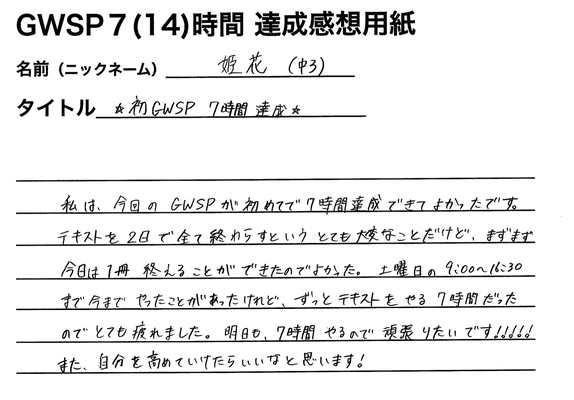 GWSP7(14)時間 達成感想用紙
名前(ニックネーム) 姫花 (中3)
タイトル ☆初GWSP 7時間達成☆
私は、今回の GWSPが初めてで7時間達成できてよかったです。
テキストを2日で全て終わらすという とても大変なことだけど、まずまず
今日は1冊 終えることができたのでよかった。 土曜日の9:00〜16:30
まで今まで やったことがあったけれど、ずっとテキストをやる7時間だった
のでとても疲れました。明日も、7時間やるので頑張りたいです!!!!!
また、自分を高めていけたらいいなと思います!